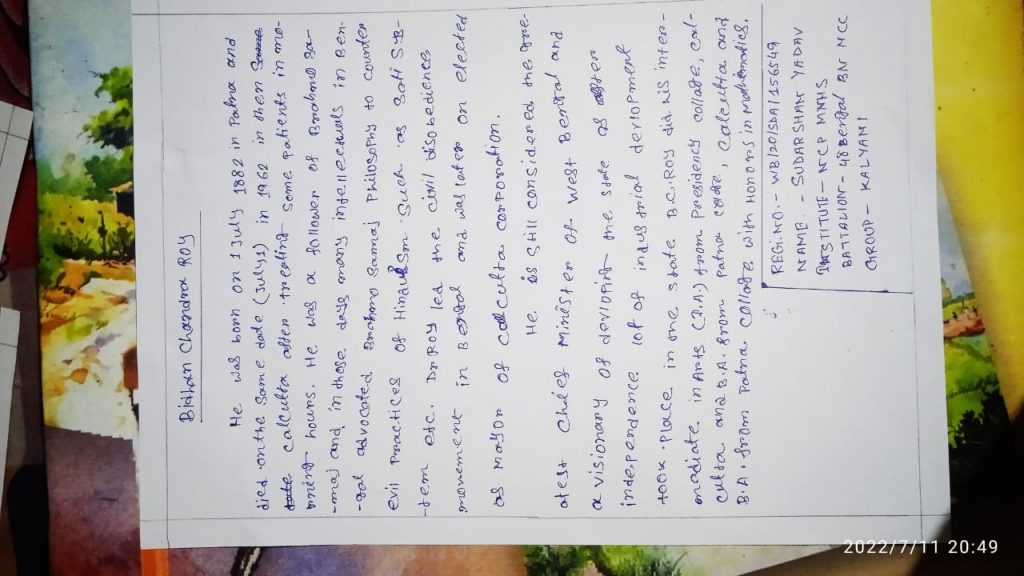 Bidhan Chandra ROY
He was born on 1 July 1882 in Patna and
died on the Same date (July 1) in 1962 in then
calcutta after treating Some patients in mo-
rning hours. He was a follower of Bramho Sa-
-maj and in those days many intellectuals in Ben-
-gal advocated Bramho Samaj Philosophy to counter
evil Practices of Hinduism Such as Sati Sys-
-tem etc. Dr ROY led the civil disobediences
movement in Bengal and was later on elected
as mayor of calcutta corporation.
He is Still considered the gre-
atest Chief Minister of West Bengal and
a visionary of devloping the state as after
independence lot of industrial devlopment
took place in the state B.C. Roy did his inter-
mediate in Arts (I.A.) from Presidency collage, cal-
cutta and B.A. from Patna collage, calcutta and
B.A. from Patna collage with Honors in mathematics.
REGI.NO.- WB/20/SDA/156549
NAME.- SUDARSHAN YADAV
INSTITUTE- NCP MVHS
BATTALION- 48 BENGAL BN NCC
GROUP- KALYANI
2022/7/11 20:49